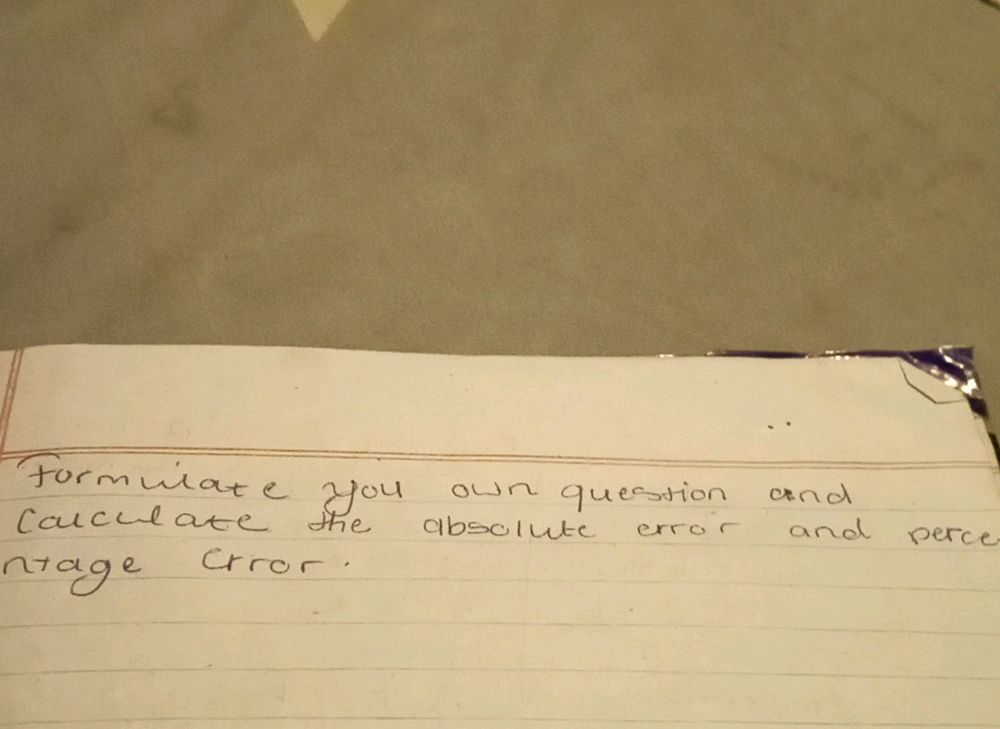 Formulate you own question and
Calculate the absolute error and perce
ntage error.